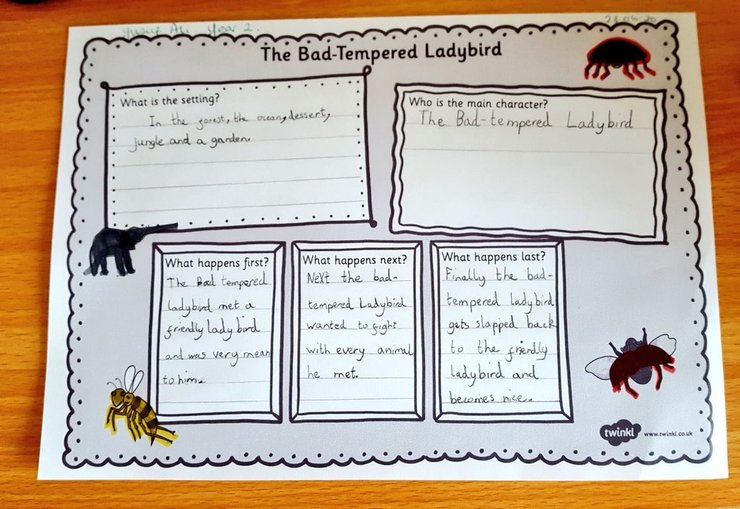 Yusuf Ali Year 2.
The Bad-Tempered Ladybird
What is the setting?
In the forest, the ocean, dessert,
jungle and a garden.
Who is the main character?
The Bad-tempered Ladybird
What happens first?
The Bad tempered
ladybird met a
friendly lady bird
and was very mean
to him.
What happens next?
Next the bad-
tempered Ladybird
wanted to fight
with every animal
he met.
What happens last?
Finally the bad-
tempered ladybird
gets slapped back
to the friendly
ladybird and
becomes nice.
twinkl www.twinkl.co.uk